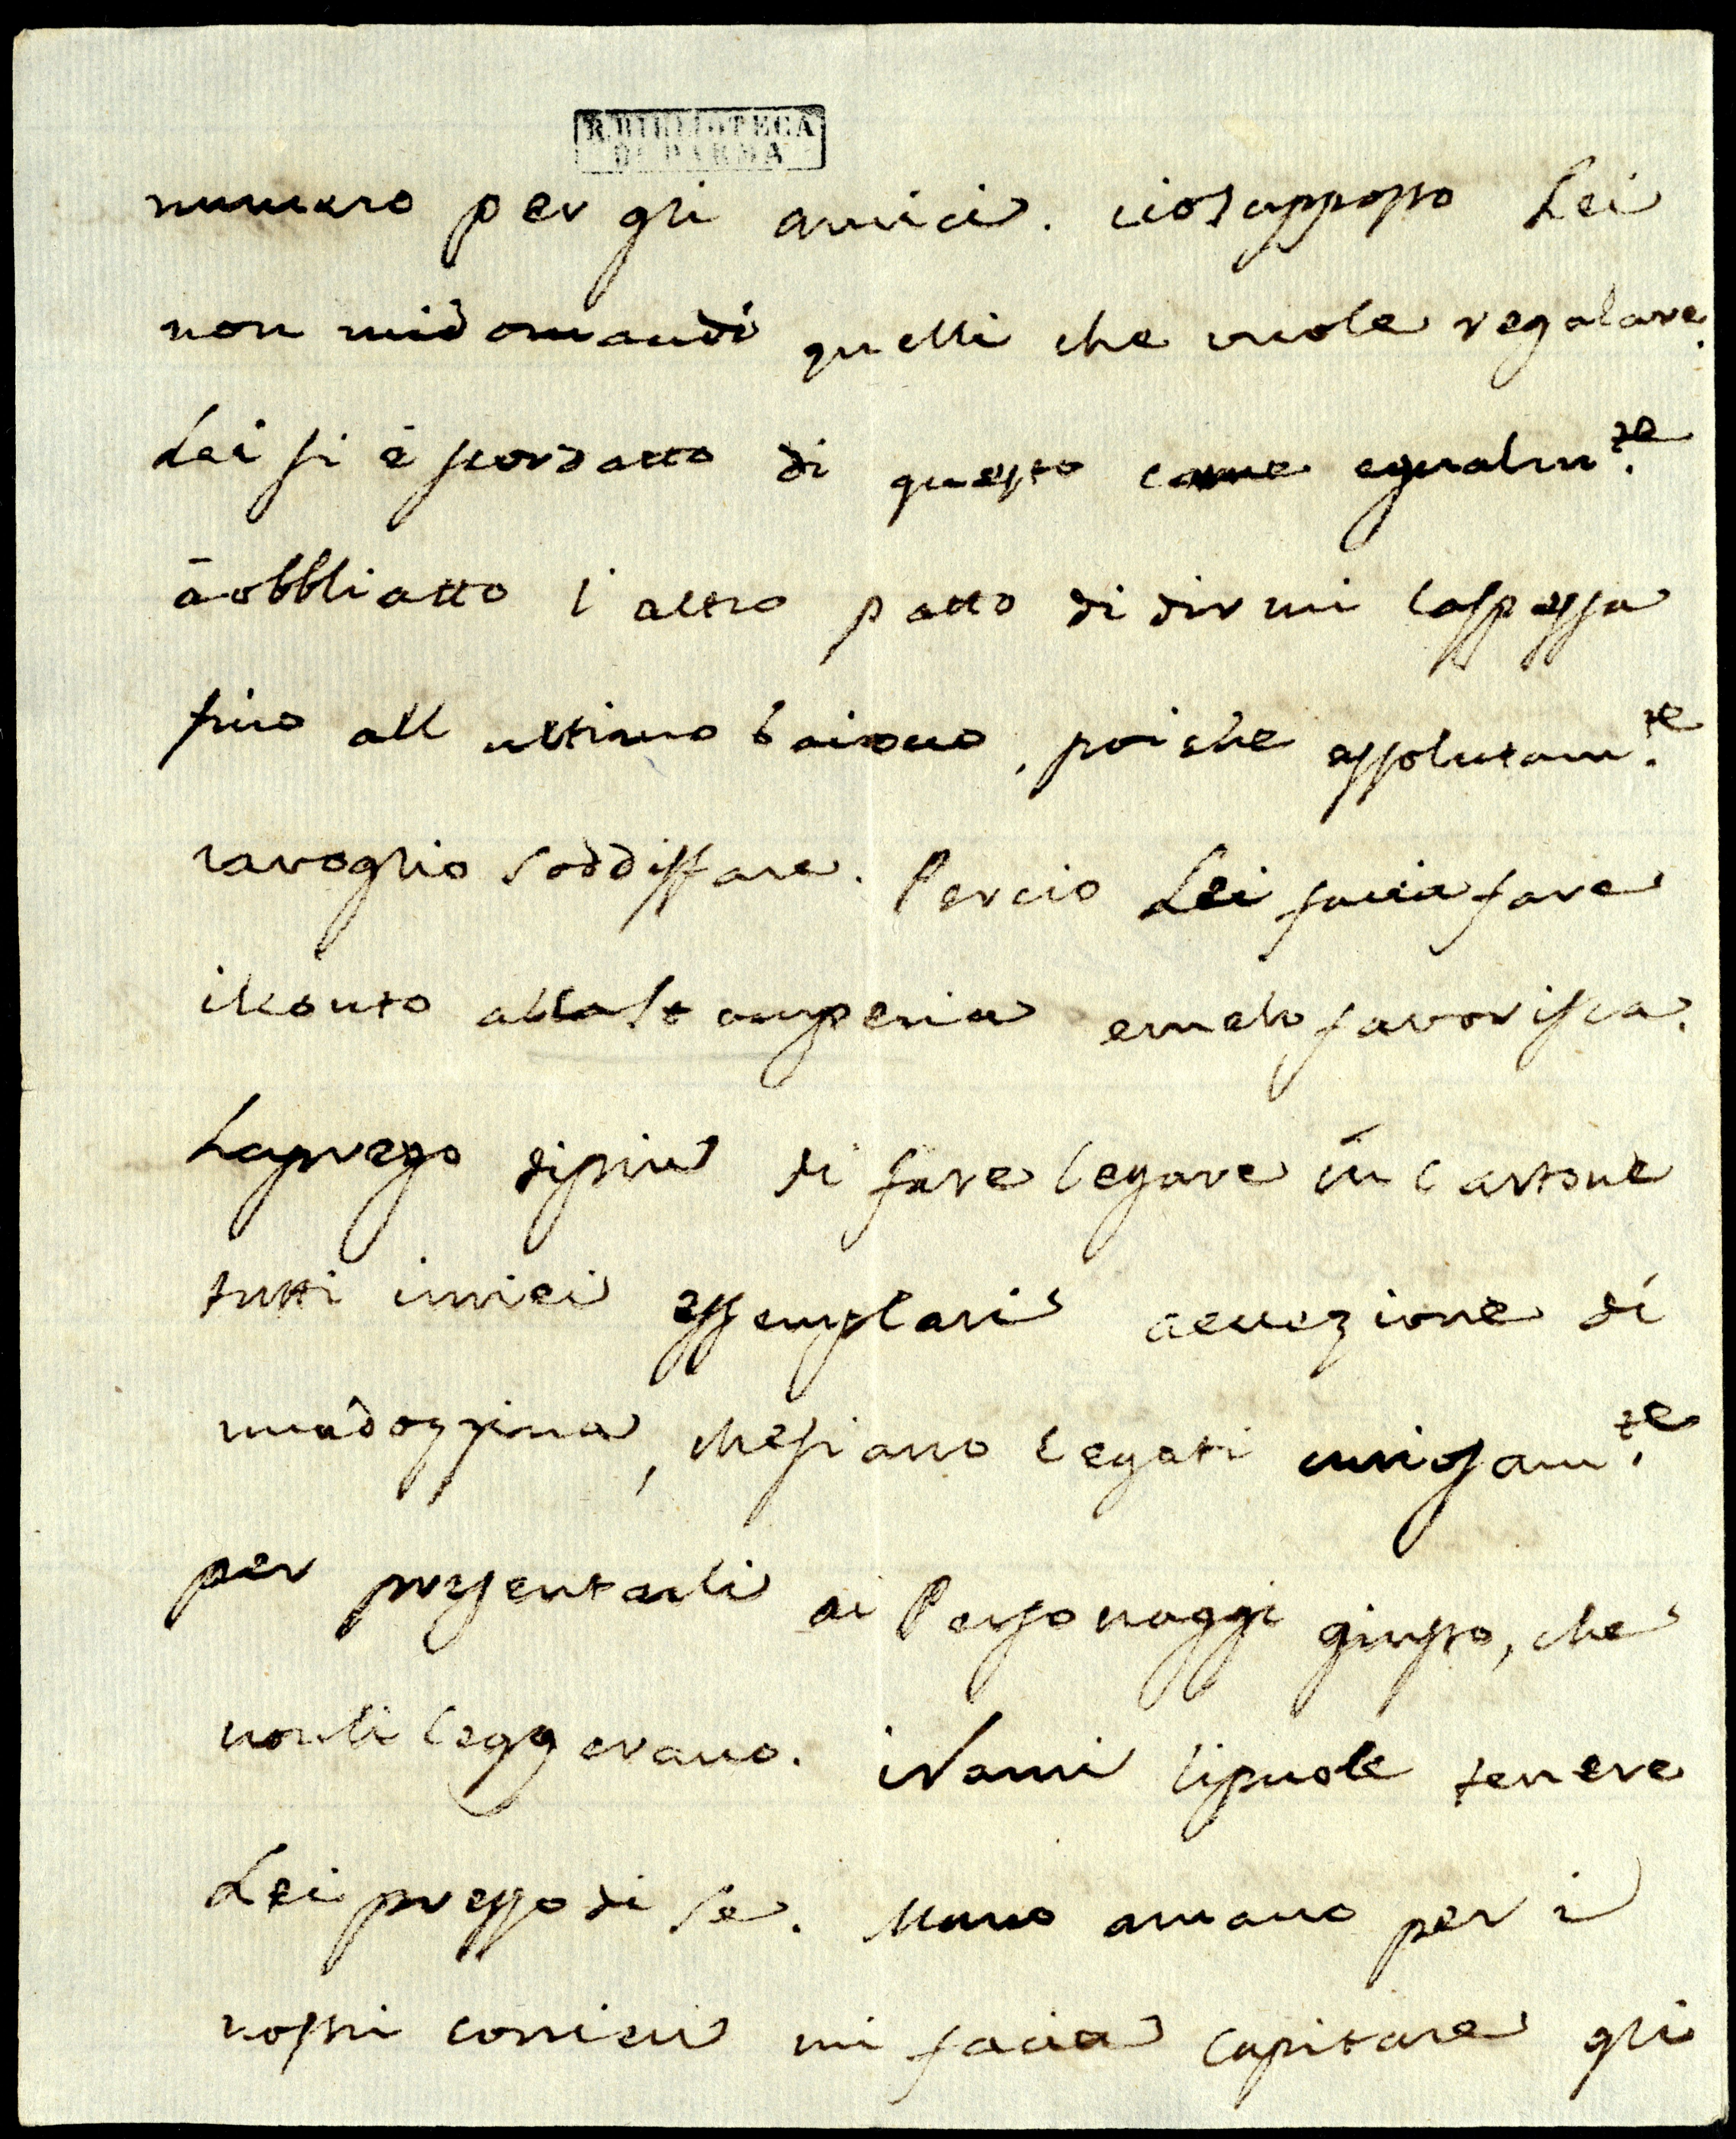 R. BIBLIOTECA
DI PARMA
numero per gli amici. ciosupposto Lei
non midomandi quelli che vuole regalare.
Lei si è scordatto di questo come egualm.te
àobbliatto l altro patto di dirmi laspessa
fino all ultimo baiocco, poiche assolutam.te
lavoglio soddisfare. Percio Lei facia fare
ilconto allaStamperia emelo favorisca.
Laprego dipiu di fare legare in cartone
tutti imiei essemplari accezione di
unadozzina, chesiano legati curiosam.te
per presentarli ai Personaggi giusto, che
nonli leggerano. iRami lipuole tenere
Lei presso di se. Mano amano per i
vostri corrieri mi facia capitare gli